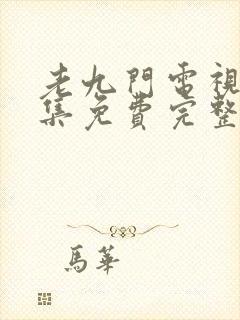 老九門電視
集免費完整
馬華